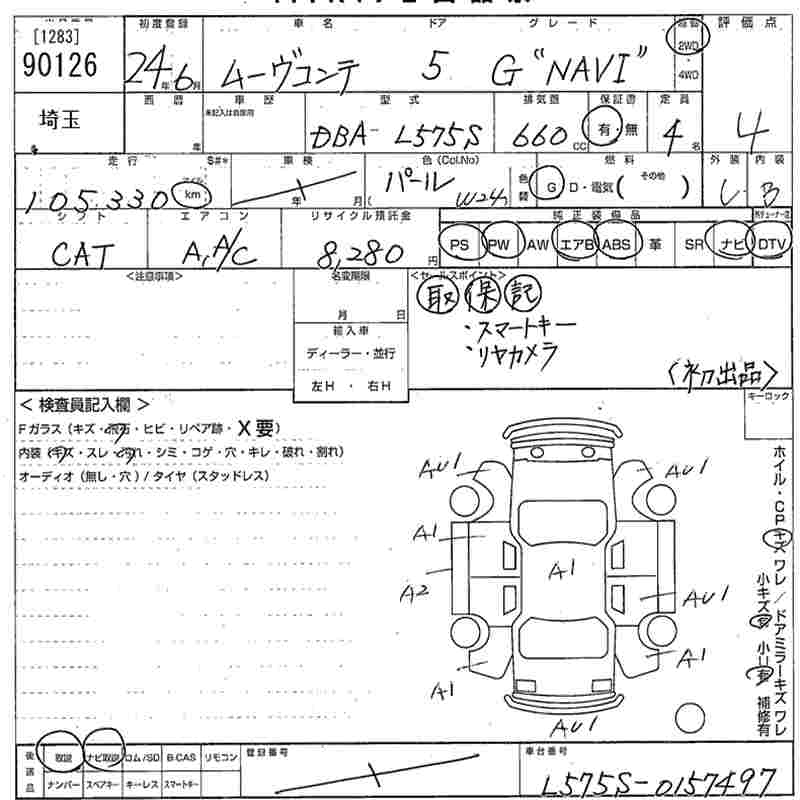 [1283]
90126
初度登録 車名 ドア グレード 駆動 評価点
24年6月 ムーヴコンテ 5 G "NAVI" 2WD
・4WD
埼玉
西暦 車歴 型式 排気量 保証書 定員
未記入は自家用
年 DBA- L575S 660CC 有・無 4名 4
走行 S#* 車検 色(Col.No) 燃料 外装 内装
105,330 マイル km 年 月 パール ( W24) 色替 G D・電気( その他 ) C B
シフト エアコン リサイクル預託金 純正装備品
CAT A,A/C 8,280円 PS PW AW エアB ABS 革 SR ナビ DTV
<注意事項> 名変期限 <セールスポイント>
月 日 取 保 記
輸入車 ・スマートキー
ディーラー・並行 ・リヤカメラ
左H ・ 右H 〈初出品〉
< 検査員記入欄 > キーロック
Fガラス(キズ・飛石・ヒビ・リペア跡・X要)
内装(キズ・スレ・汚れ・シミ・コゲ・穴・キレ・破れ・割れ)
オーディオ(無し・穴)/タイヤ(スタッドレス)
AU1 AU1
A1
A1
A2 AU1
A1 A1
AU1
ホイル・CPキズ ワレ/ドアミラーキズ ワレ
小キズ有 小凹有 補修有
後送品 取説 ナビ取説 ロム/SD B-CAS リモコン 登録番号 車台番号
ナンバー スペアキー キーレス スマートキー L575S-0157497